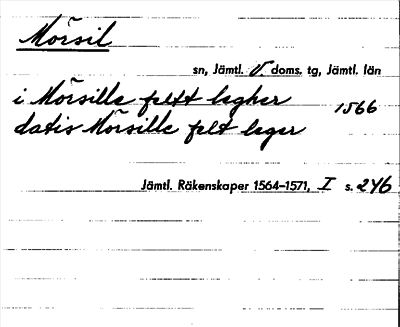 Mörsil
sn, Jämtl. V doms. tg, Jämtl. län
i Mörsille feltt legher 1566
datis Mörsille felt leger
Jämtl. Räkenskaper 1564–1571, I s. 246